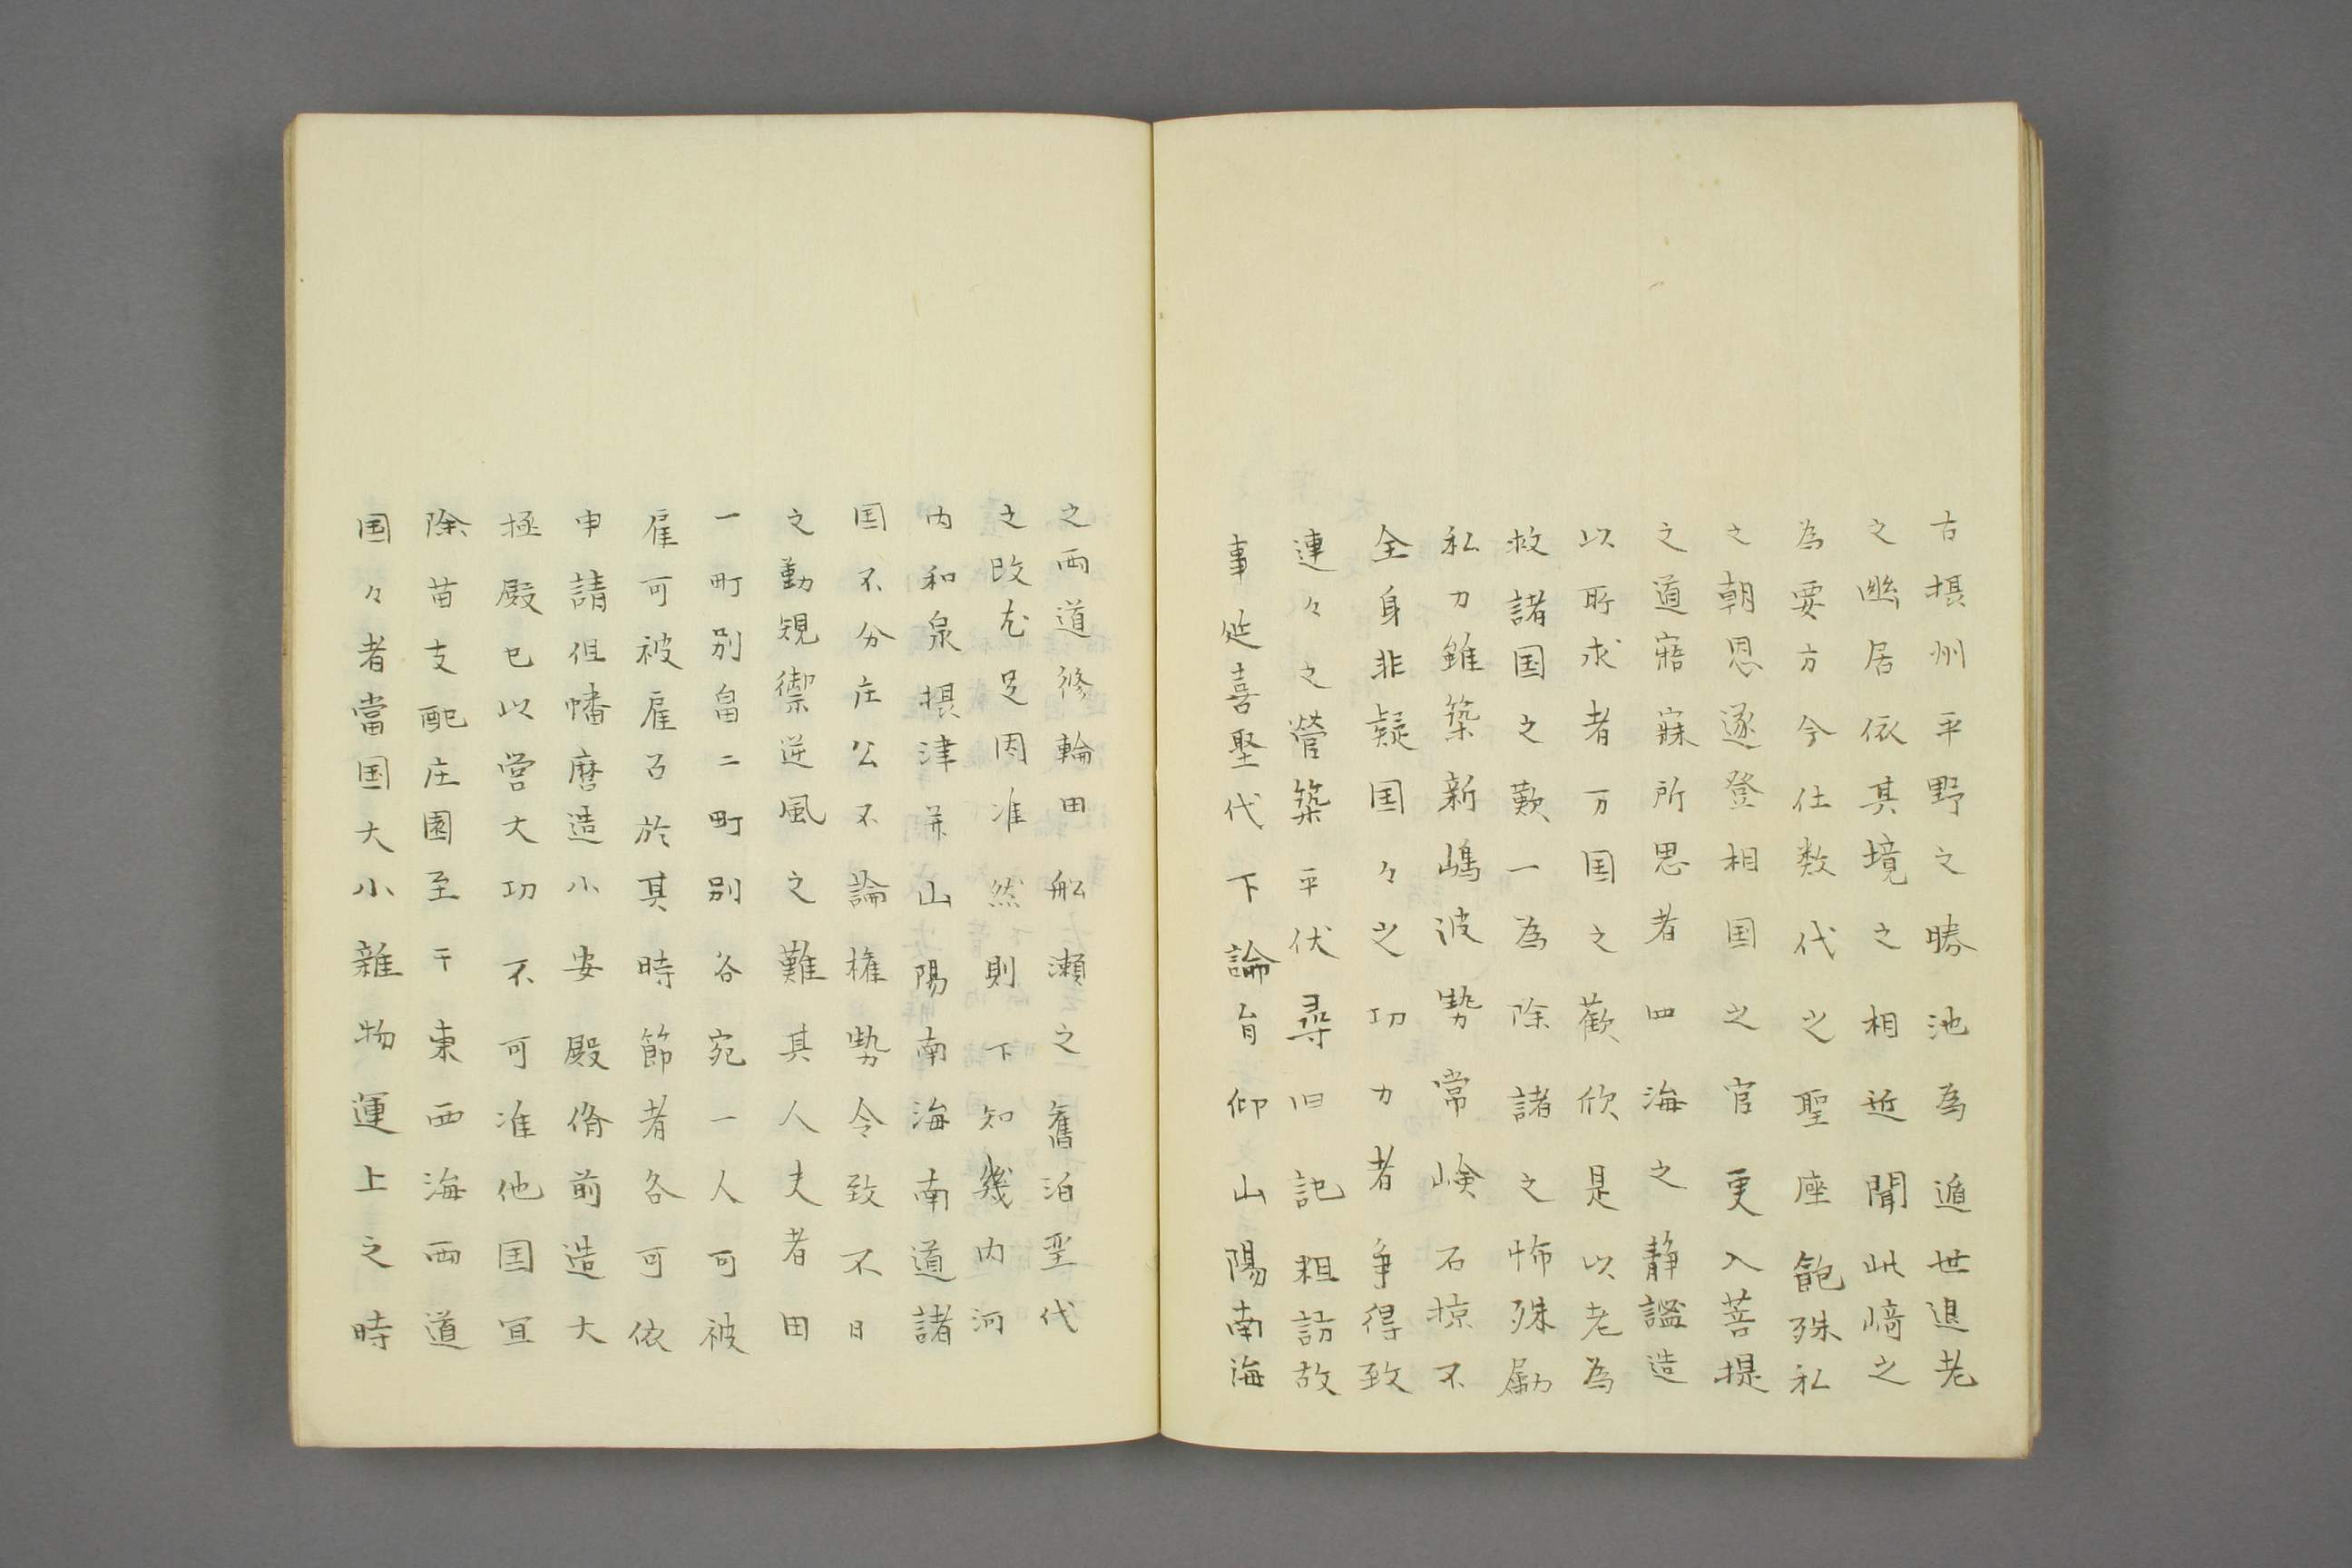 古摂州平野之勝池為遁世退老
之幽居依其境之相近聞此﨑之
為要方今仕数代之聖座飽殊私
之朝恩遂登相国之官更入菩提
之道寤寐所思者四海之静謐造
以所求者万国之歓欣是以老為
救諸国之歎一為除諸之怖殊励
私力雖築新嶋波勢常嶮石掠不
全身非疑国々之功力者争得致
連々之営築平伏尋旧記粗訪故
事延喜聖代下論旨仰山陽南海
之西道修輪田舩瀬之一旧泊聖代
之政尤足因准然則下知幾内河
内和泉摂津并山陽南海南道諸
国不分庄公不論権勢令致不日
之勤規禦逆風之難其人夫者田
一町別畠二町別各宛一人可被
雇可被雇召於其時節者各可依
申請但幡磨造小安殿脩前造大
極殿已以営大功不可准他国宜
除苗支配庄園至于東西海西道
国々者當国大小雑物運上之時